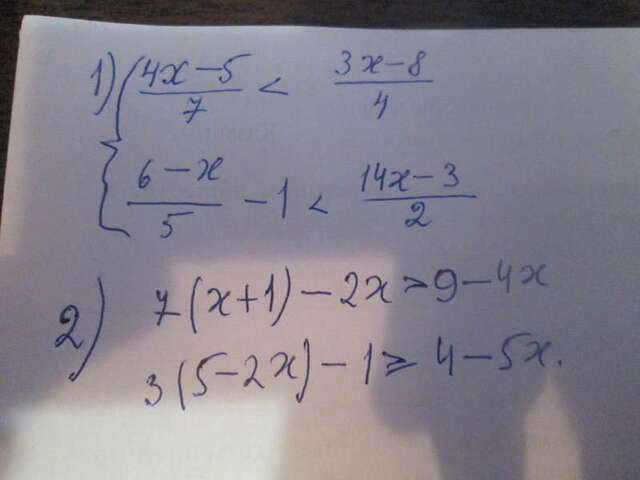 1) { (4x-5)/7 < (3x-8)/4
(6-x)/5 - 1 < (14x-3)/2
2) 7(x+1)-2x>9-4x
3(5-2x)-1≥4-5x.